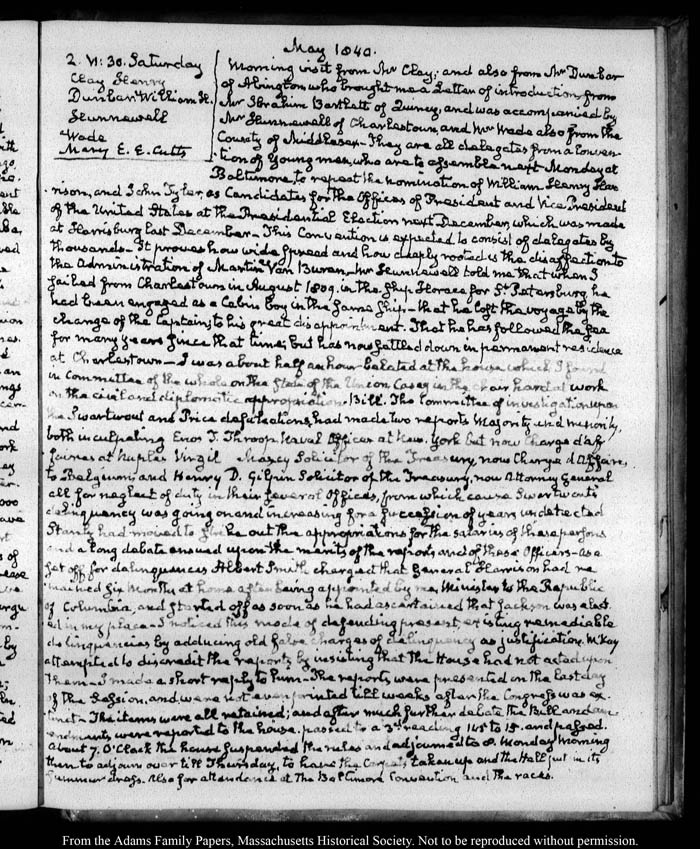 May 1840.
2. VI: 30. Saturday
Clay Henry
Dunbar William H.
Hunnewell
Wade
Mary E. E. Cutts
Morning visit from Mr Clay; and also from Mr Dunbar
of Abington who brought me a Letter of introduction, from
Mr Ibrahim Bartlett of Quincy, and was accompanied by
Mr Hunnewell of Charlestown, and Mr Wade also from the
County of Middlesex—They are all delegates from a Conven-
tion of Young men, who are to assemble next Monday at
Baltimore, to repeat the nomination of William Henry Har-
rison, and John Tyler, as Candidates for the Offices of President and Vice President
of the United States at the Presidential Election next December, which was made
at Harrisburg last December. This Convention is expected to consist of delegates by
thousands—It proves how wide spread and how deeply rooted is the disaffection to
the Administration of Martin Van Buren. Mr Hunnewell told me that when I
sailed from Charlestown in August 1809. in the Ship Horace for St Petersburg, he
had been engaged as a Cabin boy in the same Ship—that he lost the voyage by the
change of the Captain, to his great disappointment. That he has followed the Sea
for many years since that time, but has now settled down in permanent residence
at Charlestown—I was about half an hour belated at the house which I found
in Committee of the whole on the State of the Union Casey in the chair hard at work
on the civil and diplomatic appropriation Bill. The Committee of investigation upon
the Swartwout and Price defalcations, had made two reports Majority and minority,
both inculpating Enos T. Throop, Naval Officer at New-York but now Chargé d'Af-
faires at Naples Virgil Maxcy Solicitor of the Treasury now Chargé d'Affaires,
to Belgium; and Henry D. Gilpin Solicitor of the Treasury, now Attorney General
all for neglect of duty in their several Offices, from which cause Swartwout's
delinquency was going on and increasing for a succession of years undetected
Stanly had moved to strike out the appropriations for the salaries of these persons
and a long debate ensued upon the merits of the report, and of these Officers—As a
set off for delinquencies Albert Smith charged that General Harrison had re
mained six Months at home after being appointed by me, Minister to the Republic
of Columbia, and started off as soon as he had ascertained that Jackson was elect-
ed in my place—I noticed this mode of defending present, existing remediable
delinquencies by adducing old false charges of delinquency as justification. McKay
attempted to discredit the reports by insisting that the House had not acted upon
them—I made a short reply to him—The reports were presented on the last day
of the Session, and were not even printed till weeks after the Congress was ex-
tinct—The items were all retained; and after much further debate the Bill and am-
endments were reported to the house. passed to a 3d reading 145 to 15. and passed.
About 7. O'Clock the house suspended the rules and adjourned to 8. Monday Morning
then to adjourn over till Thursday, to have the Carpets taken up and the Hall put in its
Summer dress. Also for attendance at The Baltimore Convention and the races.
From the Adams Family Papers, Massachusetts Historical Society. Not to be reproduced without permission.